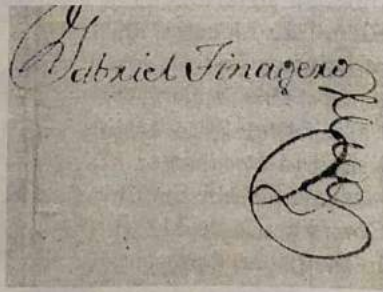 Gabriel Finagero